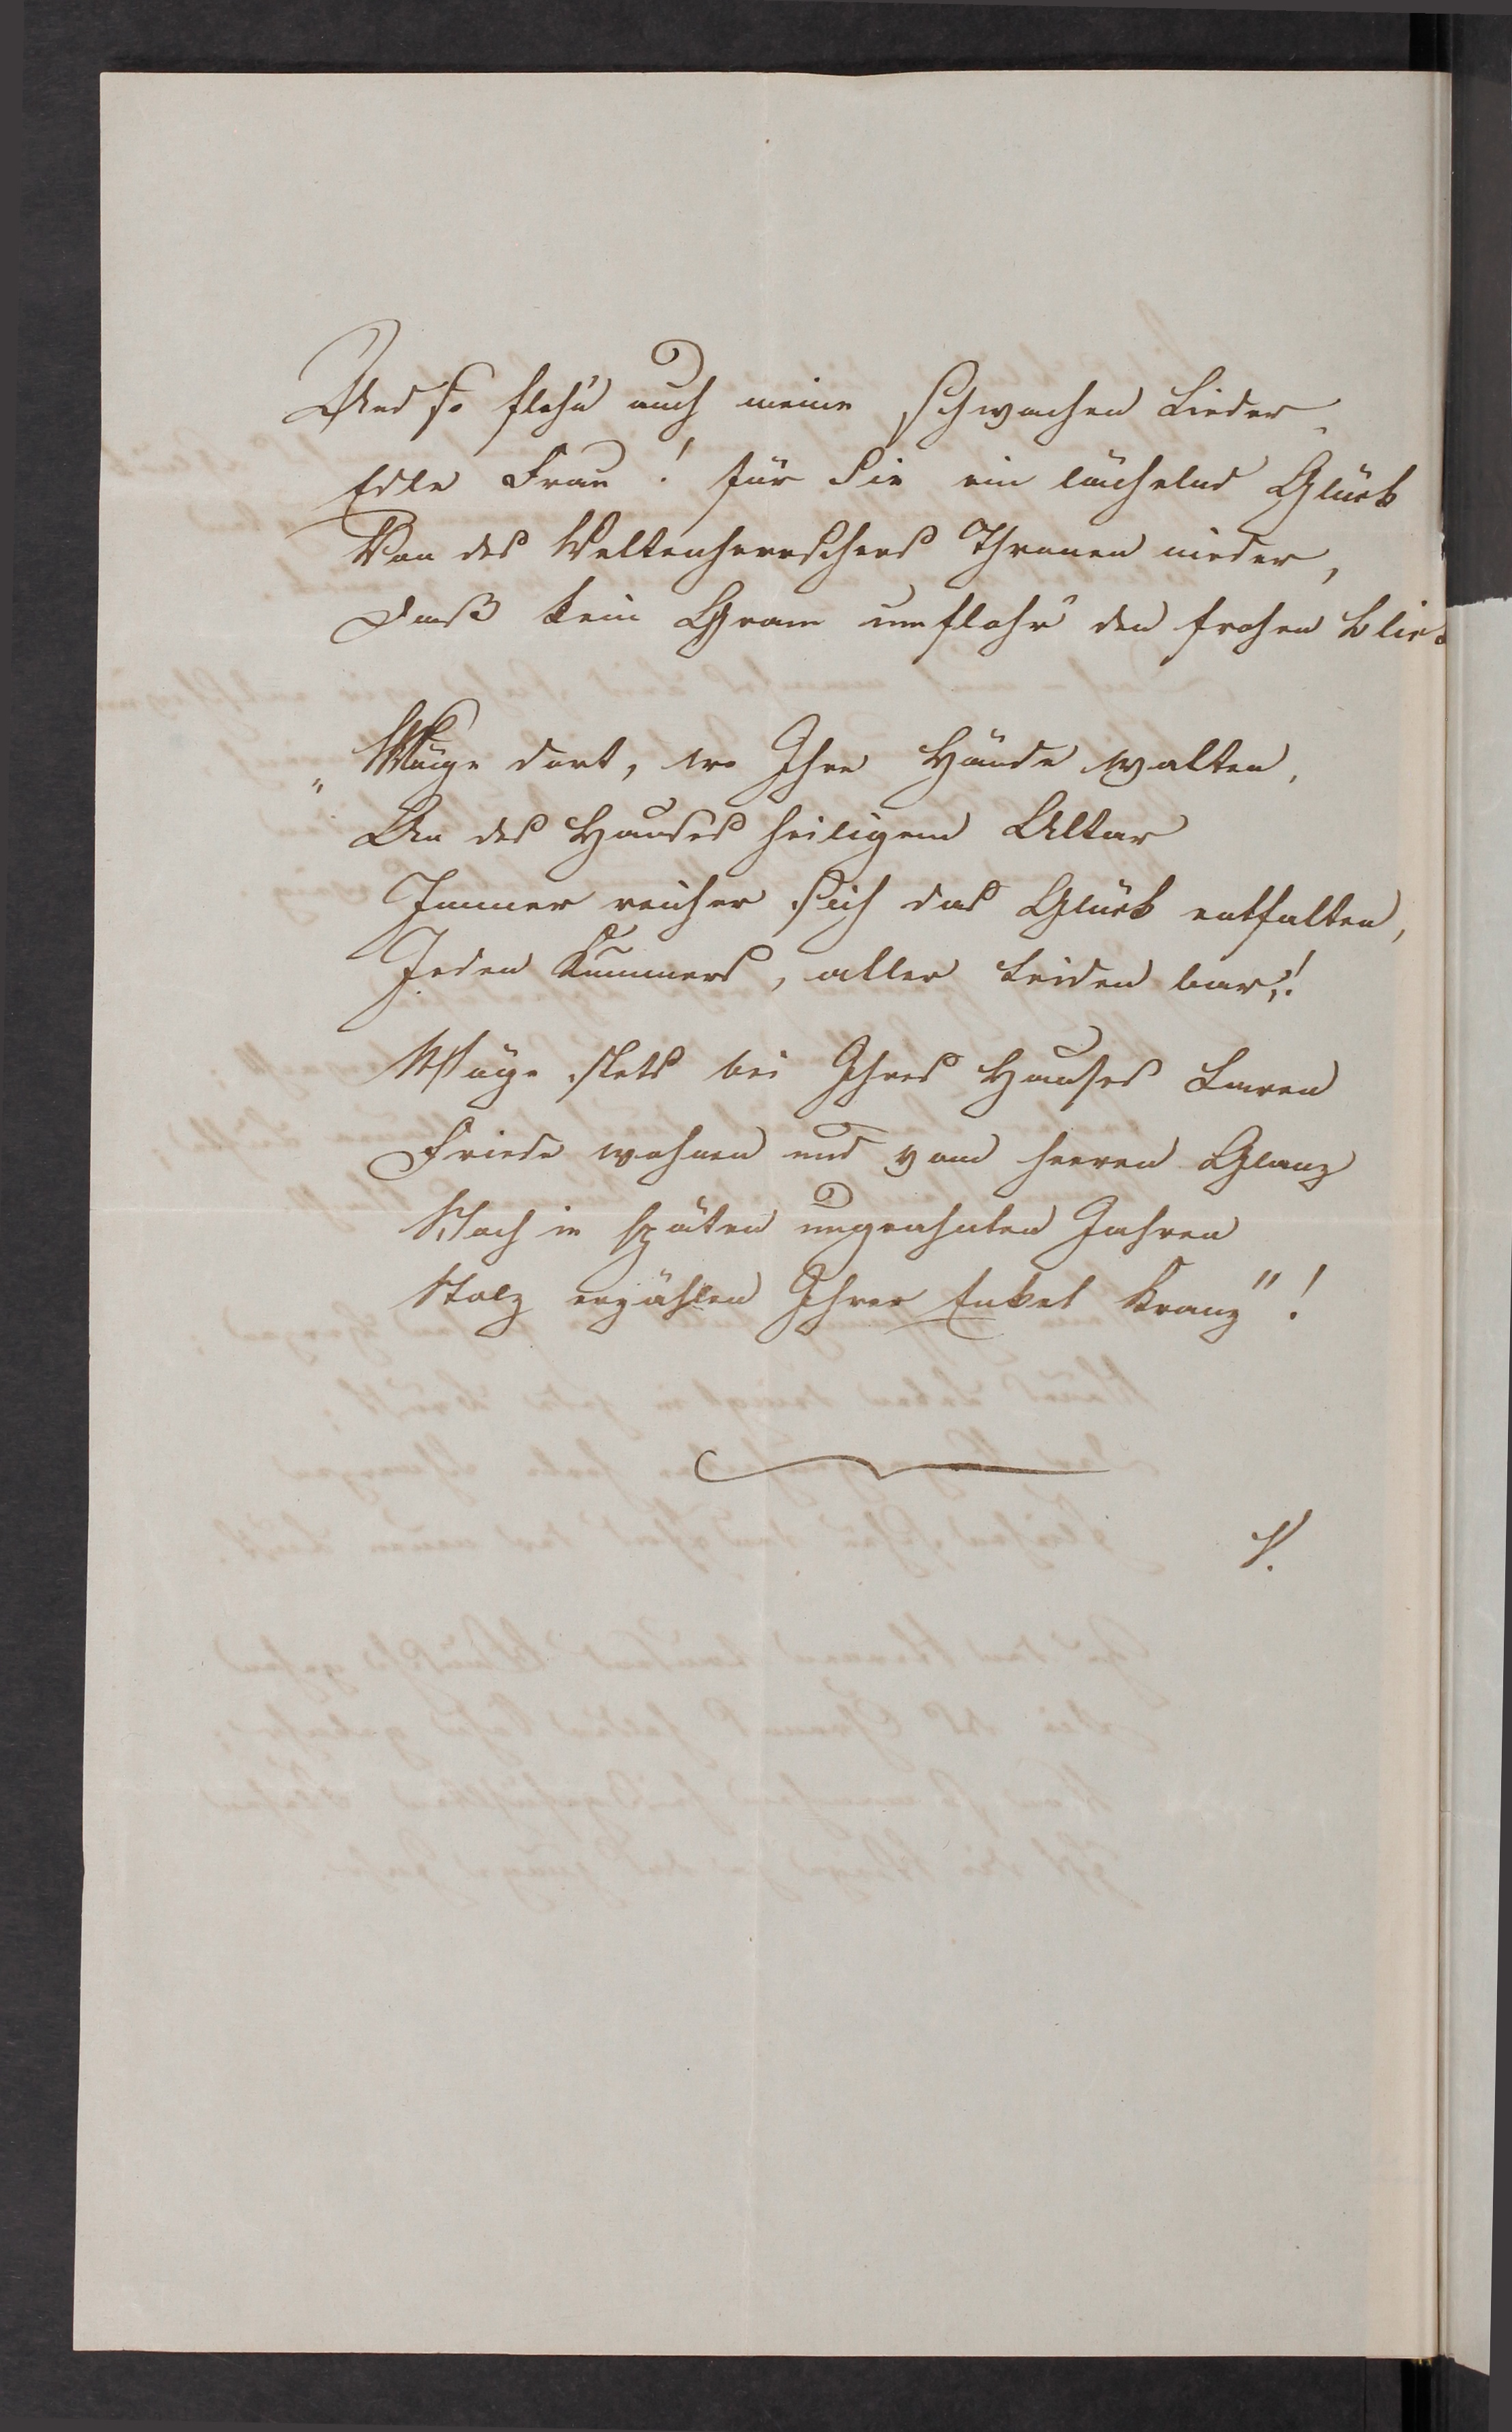 Und so fleh'n auch meine schwachen Lieder,
Edle Frau! für Sie ein lächelnd Glück
Von des Weltenherrschers Thronen nieder,
Daß kein Gram umflohr' den frohen Blick
„Möge dort, wo Ihre Hände walten,
An des Hauses heiligem Altar
Immer reicher sich das Glück entfalten,
Jeden Kummers, aller Leiden bar!
Möge stets bei Ihres Hauses Laren
Friede wohnen und vom heeren Glanz
Noch in späten ungeahnten Jahren
Stolz erzählen Ihrer Enkel Kranz"!